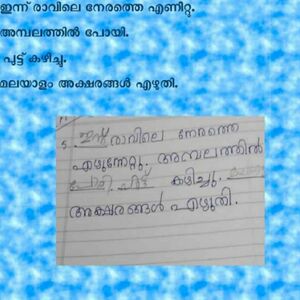 ഇന്ന് രാവിലെ നേരത്തെ എണിറ്റു.
അമ്പലത്തിൽ പോയി.
പുട്ട് കഴിച്ചു.
മലയാളം അക്ഷരങ്ങൾ എഴുതി.
5. ഇന്ന് രാവിലെ നേരത്തെ
എഴുന്നേറ്റു. അമ്പലത്തിൽ
പോയി. പുട്ട് കഴിച്ചു.
അക്ഷരങ്ങൾ എഴുതി.